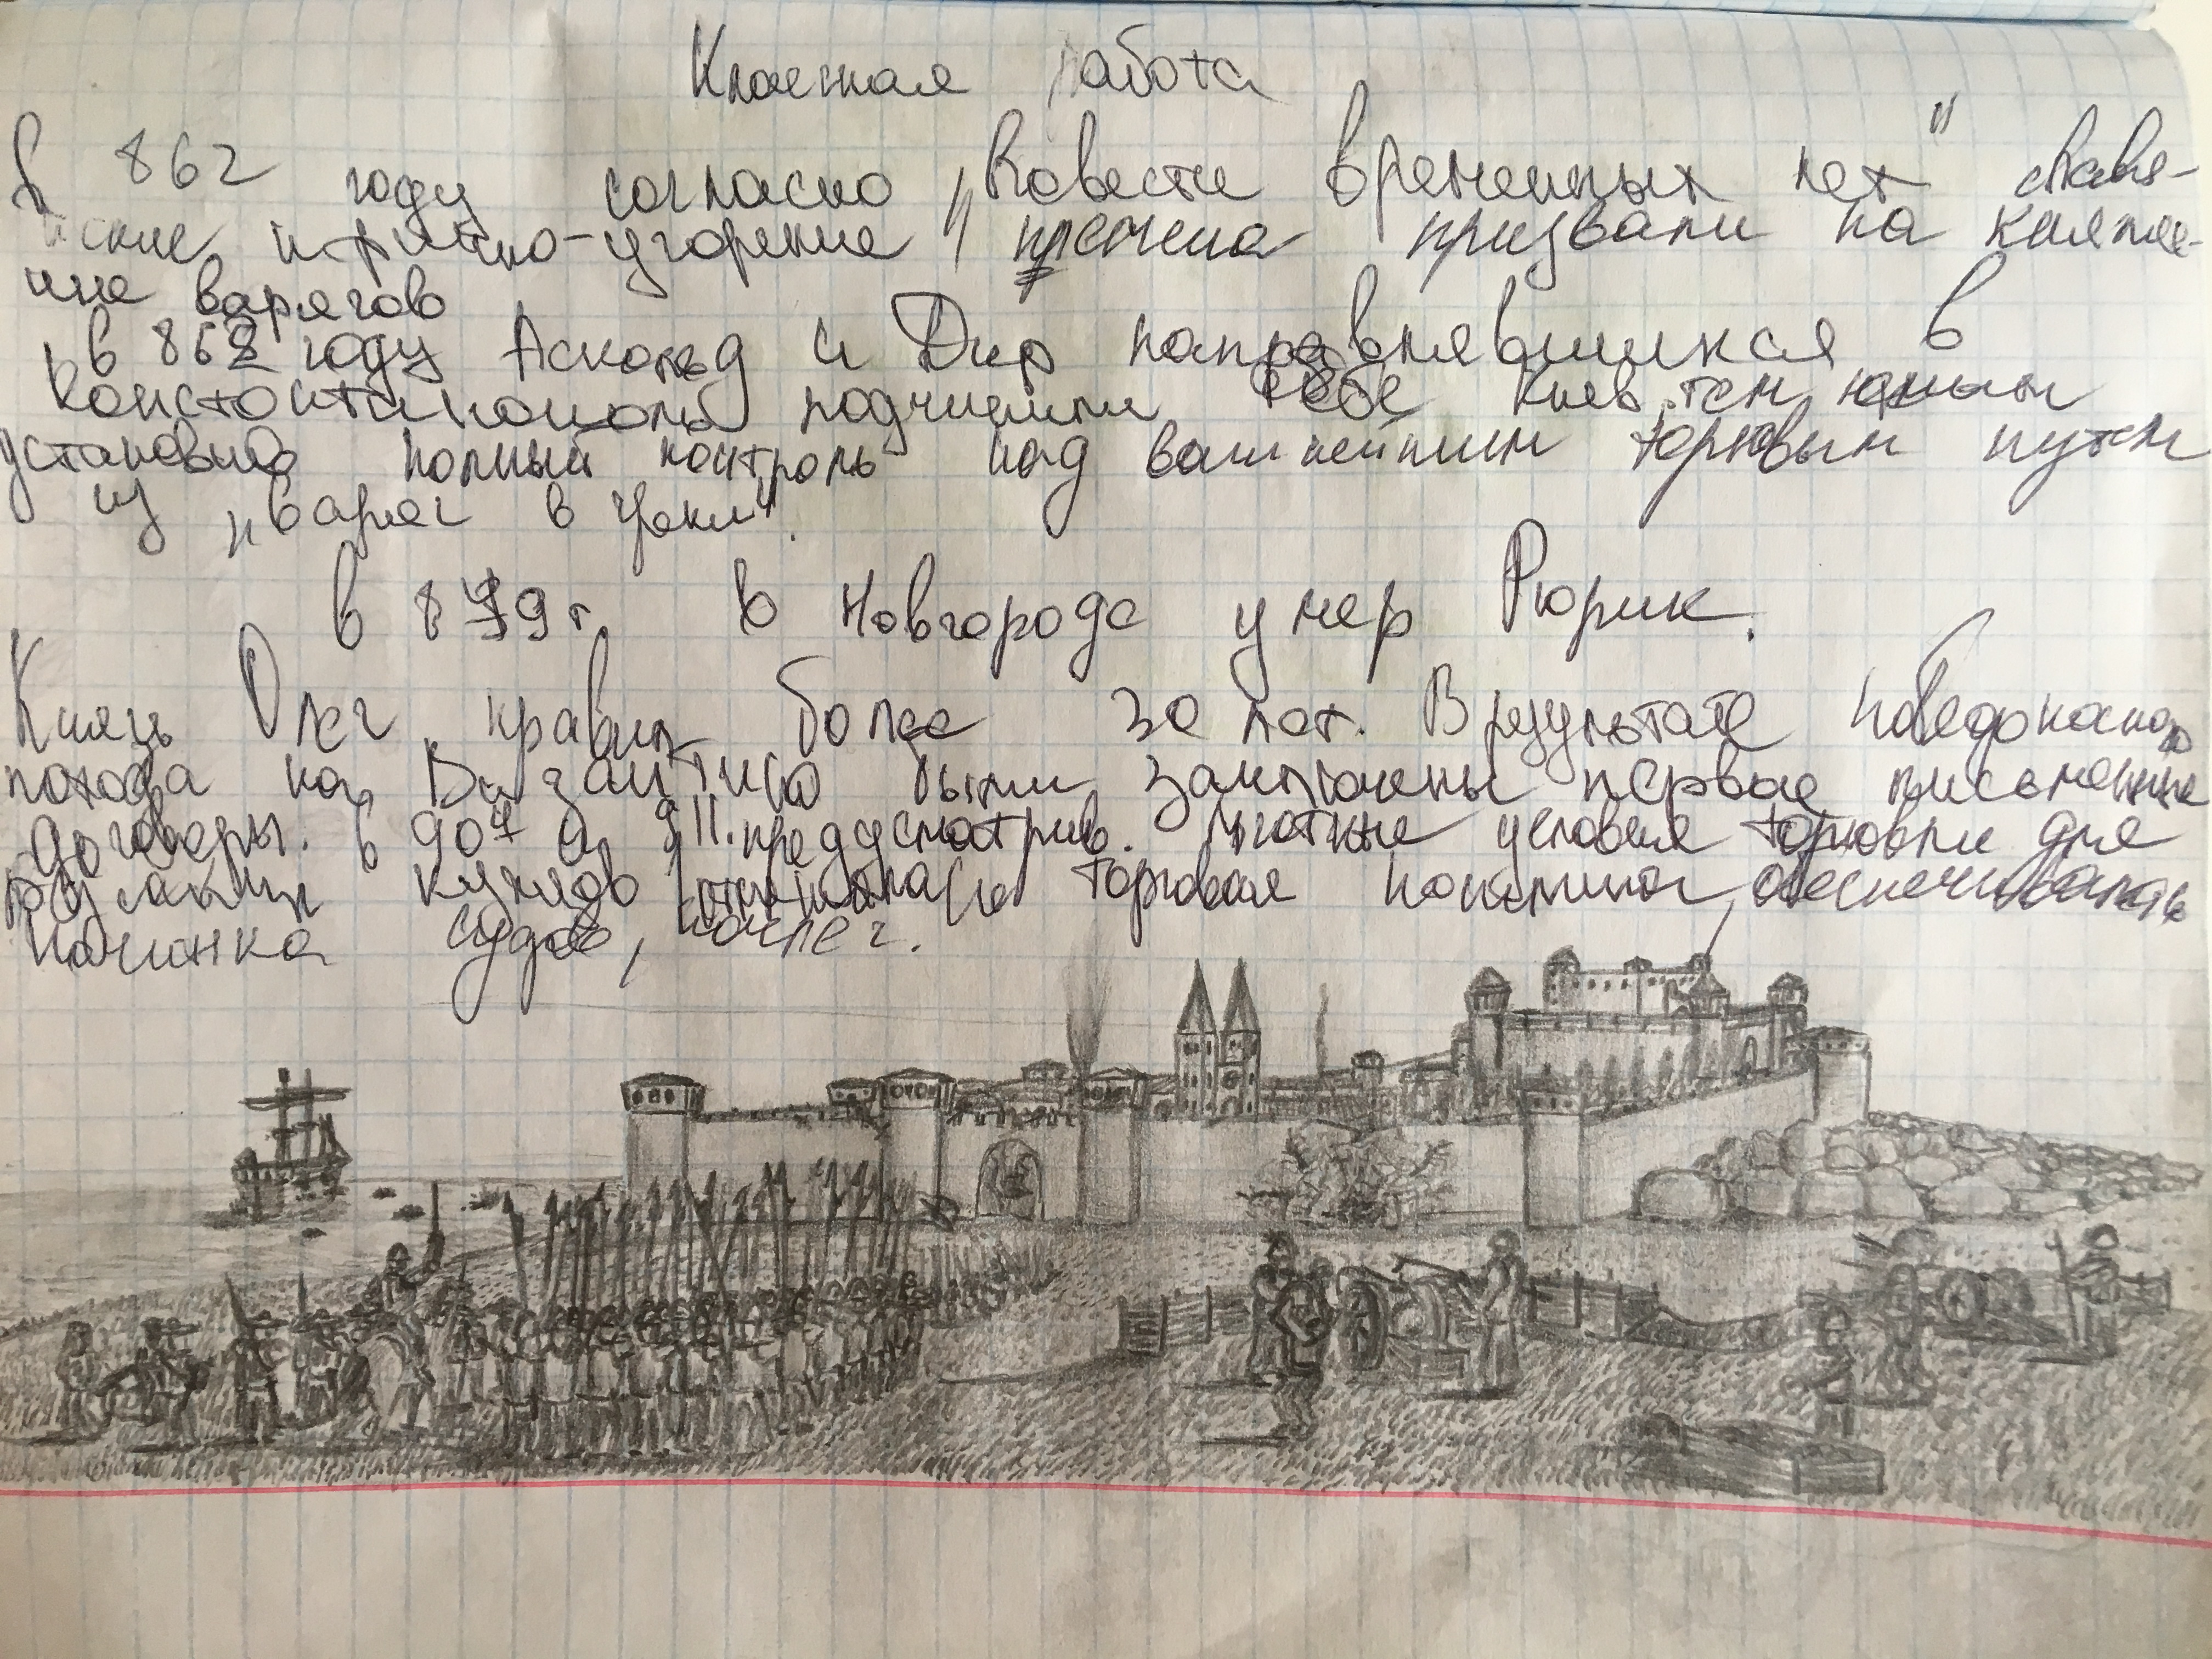 Классная работа
В 862 году согласно „Повести временных лет" славя-
нские и финно-угорские племена призвали на княже-
ние варягов
в 862 году Аскольд и Дир направлявшихся в
Константинополь подчинили себе Киев, тем самым
установив полный контроль над важнейшим торговым путем
из „варяг в греки".
в 879 г. в Новгороде умер Рюрик.
Князь Олег правил более 30 лет. В результате победоносного
похода на Византию были заключены первые письменные
договоры. в 907 и 911. предусматрив. льготные условия торговли для
русских купцов отменялась торговая пошлина, обеспечивалась
починка судов, ночлег.